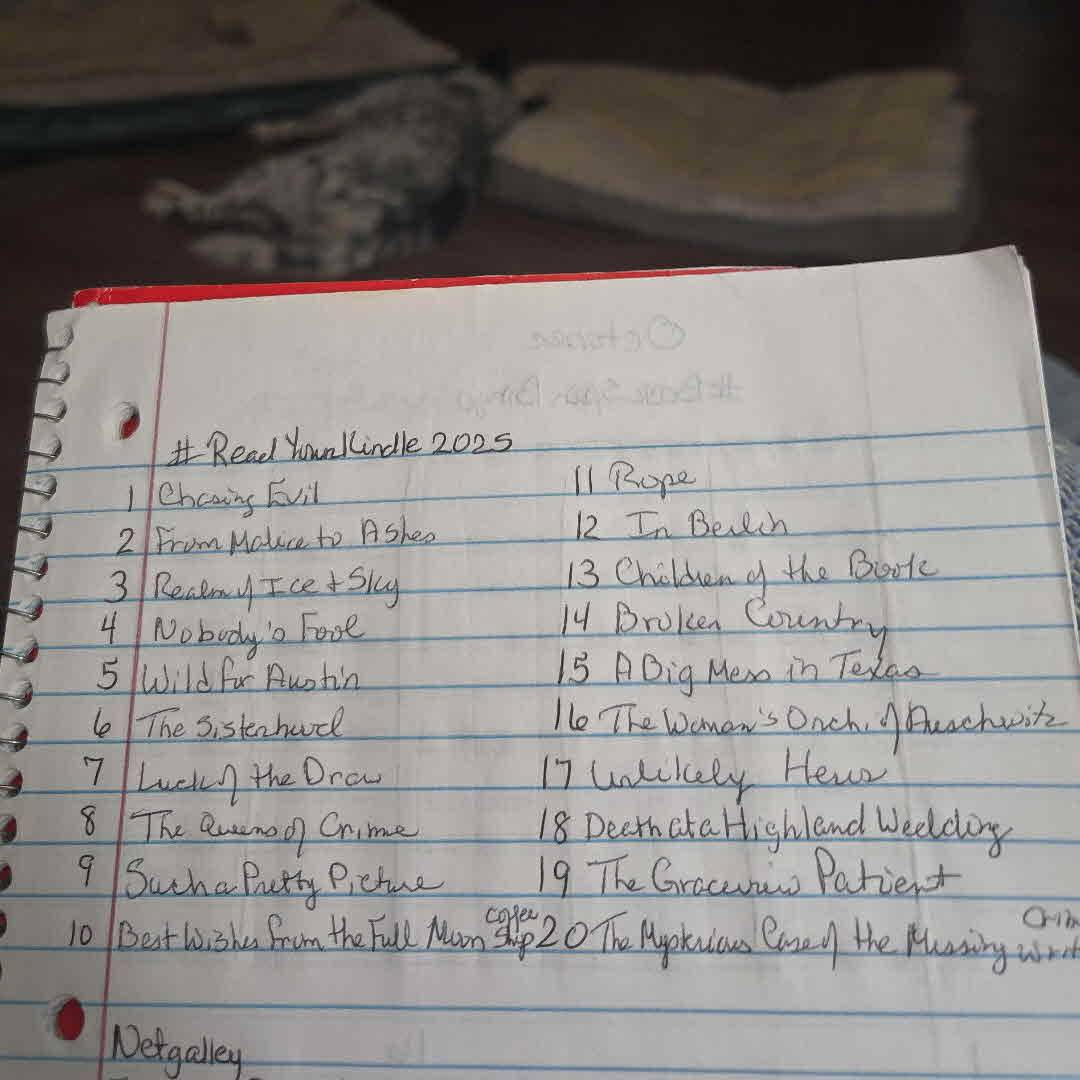 #Read Your Kindle 2025
1 Chasing Evil
2 From Malice to Ashes
3 Realm of Ice + Sky
4 Nobody's Fool
5 Wild for Austin
6 The Sisterhood
7 Luck of the Draw
8 The Queens of Crime
9 Such a Pretty Picture
10 Best Wishes from the Full Moon Coffee Shop
11 Rope
12 In Berlin
13 Children of the Book
14 Broken Country
15 A Big Mess in Texas
16 The Woman's Orch. of Auschwitz
17 Unlikely Heirs
18 Death at a Highland Wedding
19 The Graceview Patient
20 The Mysterious Case of the Missing Crim Writ
Netgalley